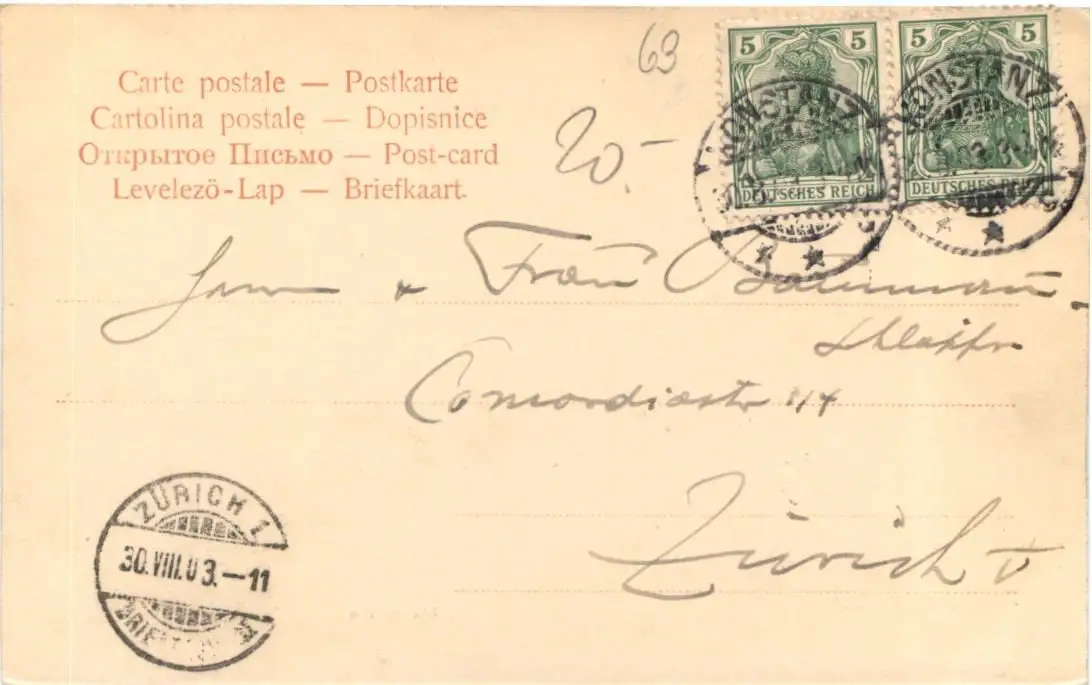 Carte postale — Postkarte
Cartolina postale — Dopisnice
Открытое Письмо — Post-card
Levelező-Lap — Briefkaart.
63
20.-
5 5
DEUTSCHES REICH
5 5
DEUTSCHES REICH
KONSTANZ
KONSTANZ
Herrn & Frau Baumann
Concordiastr
Zürich V
ZÜRICH 1
30.VIII.03.—11